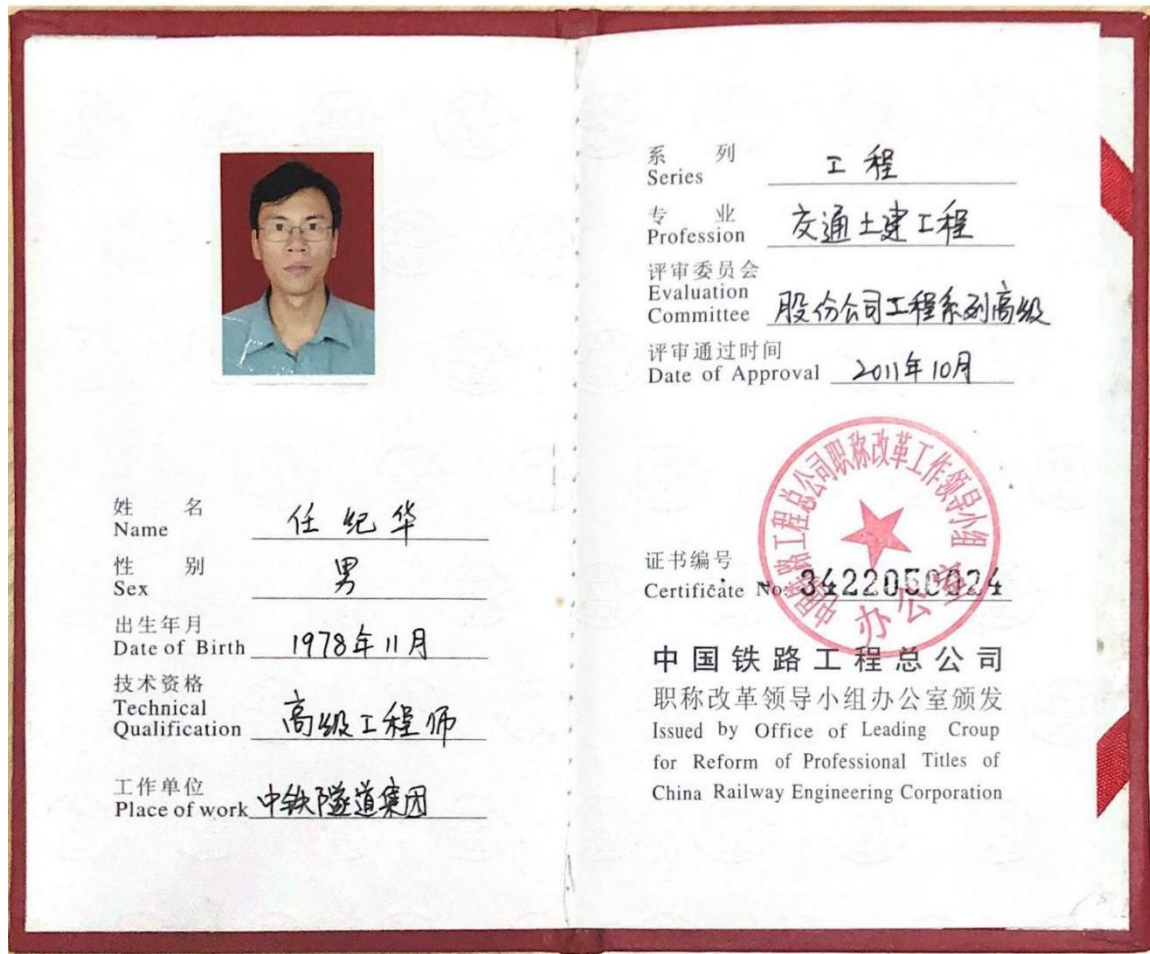 姓 名
Name 任纪华
性 别
Sex 男
出生年月
Date of Birth 1978年11月
技术资格
Technical
Qualification 高级工程师
工作单位
Place of work 中铁隧道集团
系 列
Series 工程
专 业
Profession 交通土建工程
评审委员会
Evaluation
Committee 股份公司工程系列高级
评审通过时间
Date of Approval 2011年10月
中国铁路工程总公司职称改革工作领导小组
办公室
证书编号
Certificate No. 3422050024
中国铁路工程总公司
职称改革领导小组办公室颁发
Issued by Office of Leading Croup
for Reform of Professional Titles of
China Railway Engineering Corporation